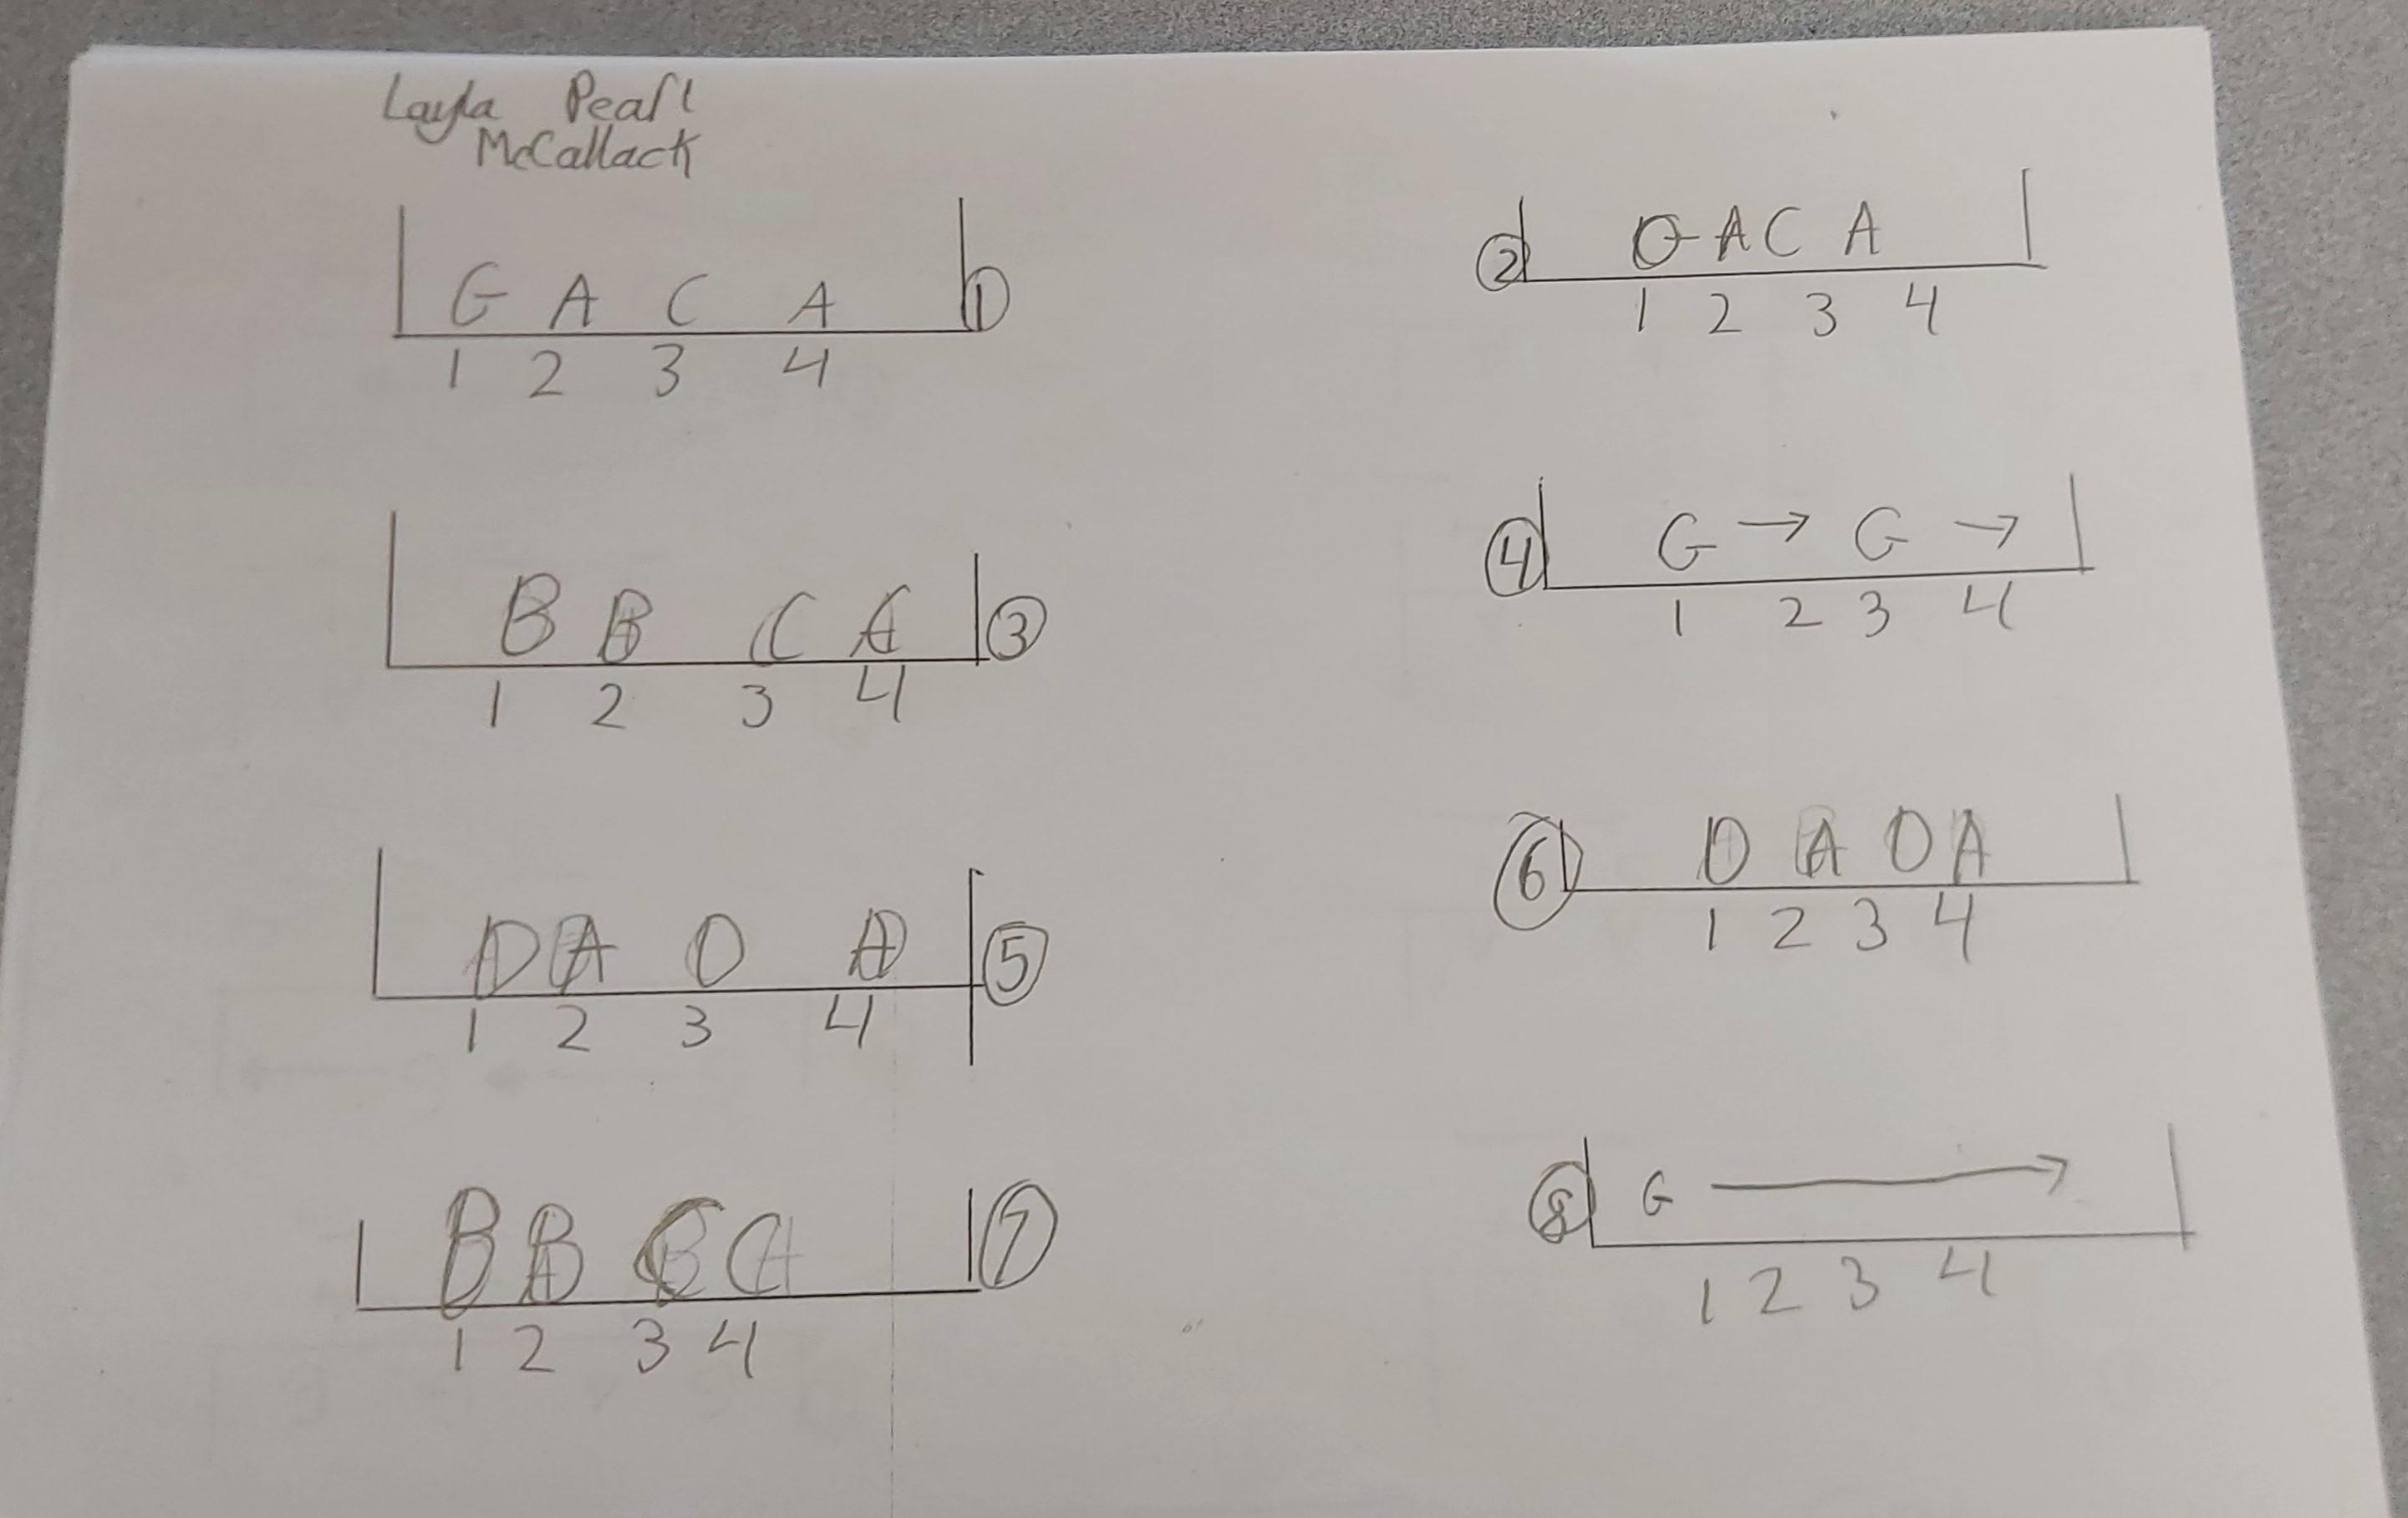 Layla Pearl
McCallack
G A C A ①
1 2 3 4
② G A C A
1 2 3 4
B B C C ③
1 2 3 4
④ G → G →
1 2 3 4
D A D A ⑤
1 2 3 4
⑥ D A D A
1 2 3 4
B B C C ⑦
1 2 3 4
⑧ G →
1 2 3 4